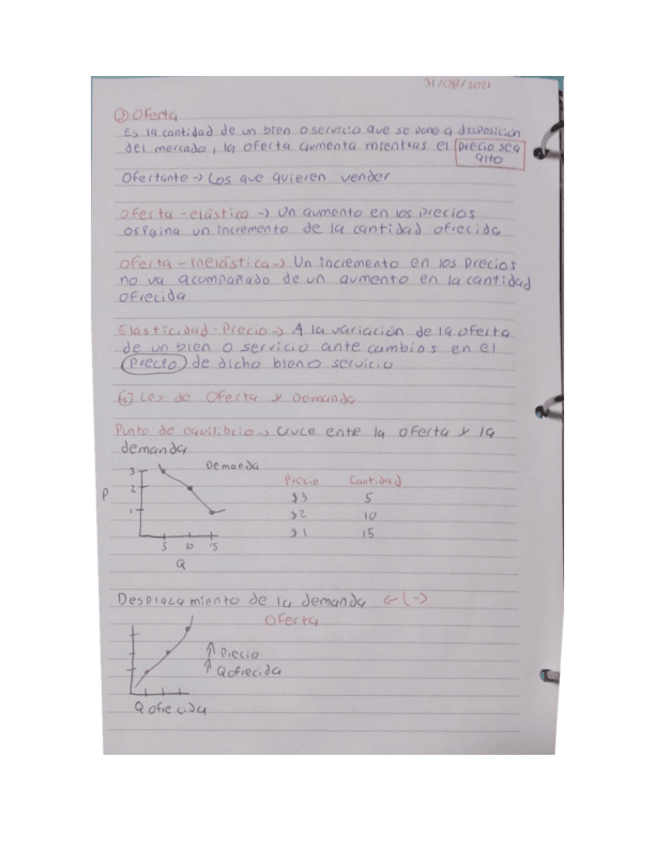 31/08/2021
③ Oferta
Es la cantidad de un bien o servicio que se pone a disposición
del mercado, la oferta aumenta mientras el precio sea
alto
Ofertante → Los que quieren vender
Oferta - elástica → Un aumento en los precios
origina un incremento de la cantidad ofrecida
Oferta - Inelástica → Un incremento en los precios
no va acompañado de un aumento en la cantidad
ofrecida
Elasticidad - Precio → A la variación de la oferta
de un bien o servicio ante cambios en el
Precio de dicho bien o servicio
④ Ley de Oferta y Demanda
Punto de equilibrio → Cruce ente la oferta y la
demanda
Demanda
P
3
2
1
5 10 15
Q
Precio Cantidad
$3 5
$2 10
$1 15
Desplazamiento de la demanda ← (→)
Oferta
↑ Precio
↑ Q ofrecida
Q ofrecida